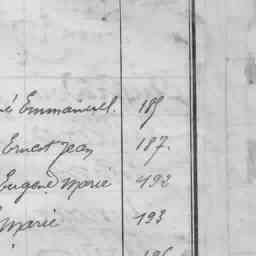 é Emmanuel. 185
Ernest Jean 187.
Eugène Marie 192
Marie 193